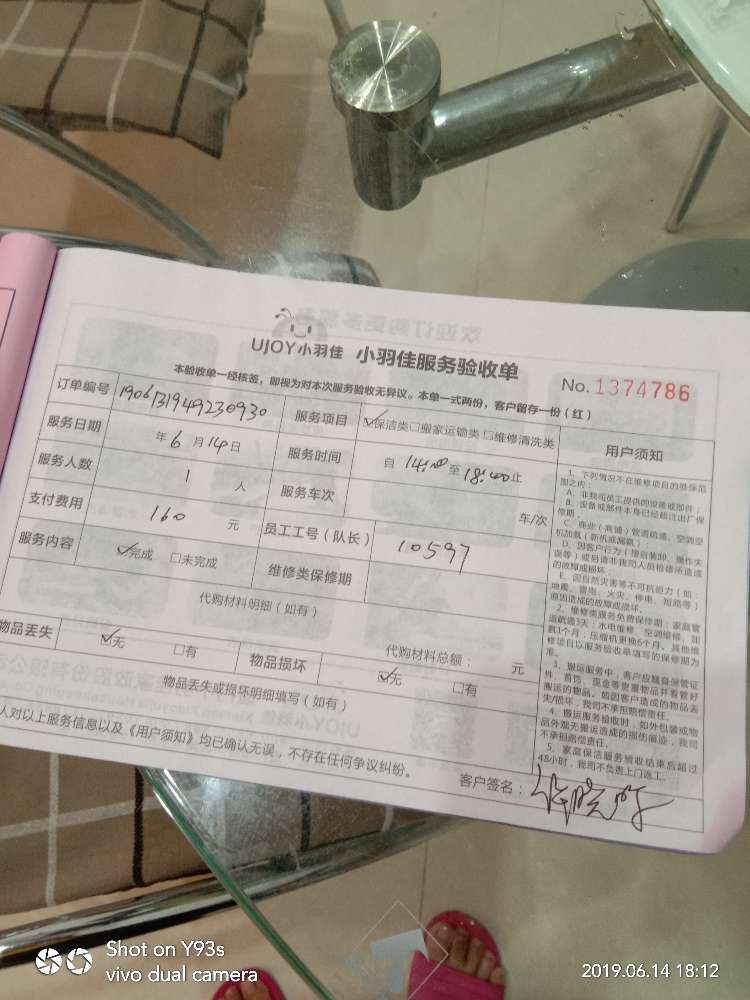 UJOY小羽佳 小羽佳服务验收单
No. 1374786
本验收单一经核签，即视为对本次服务验收无异议。本单一式两份，客户留存一份（红）
订单编号 190613194923 0930 服务项目 ☑保洁类□搬家运输类 □维修清洗类
服务日期 年 6 月 14 日 服务时间 自 14:00 至 18:00 止
服务人数 1 人 服务车次 车/次
支付费用 160 元 员工工号（队长） 10597
服务内容 ☑完成 □未完成 维修类保修期
代购材料明细（如有）
代购材料总额： 元
物品丢失 ☑无 □有 物品损坏 ☑无 □有
物品丢失或损坏明细填写（如有）
人对以上服务信息以及《用户须知》均已确认无误，不存在任何争议纠纷。
客户签名：
用户须知
1、下列情况不在维修项目的质保范
围之内：
A、非我司员工提供的设备或部件；
B、设备或部件本身已经超过出厂保
修期
C、商业（商铺）管道疏通、空调空
机加氨（新机或漏氨）
D、因客户行为（擅自装卸、操作失
误等）或另请非我司人员检修所造成
的故障或损坏。
E、因自然灾害等不可抗拒力（如：
地震、雷电、火灾、停电、短路等）
原因造成的故障或损坏。
2、维修类服务免费保修期：家庭管
道疏通3天；水电维修、空调维修、加
氨1个月；压缩机更换6个月。其他维
修项目以服务验收单填写的保修期为
准。
3、搬运服务中，客户应随身保管证
件、首饰、现金等贵重物品并看管好
搬运的物品。如因客户造成的物品丢
失/损坏，我司不承担赔偿责任。
4、搬运服务验收时，如外包装或物
品外观无搬运造成的损伤痕迹，我司
不承担赔偿责任。
5、家庭保洁服务验收结束后超过
48小时，我司不负责上门返工。
Shot on Y93s
vivo dual camera
2019.06.14 18:12